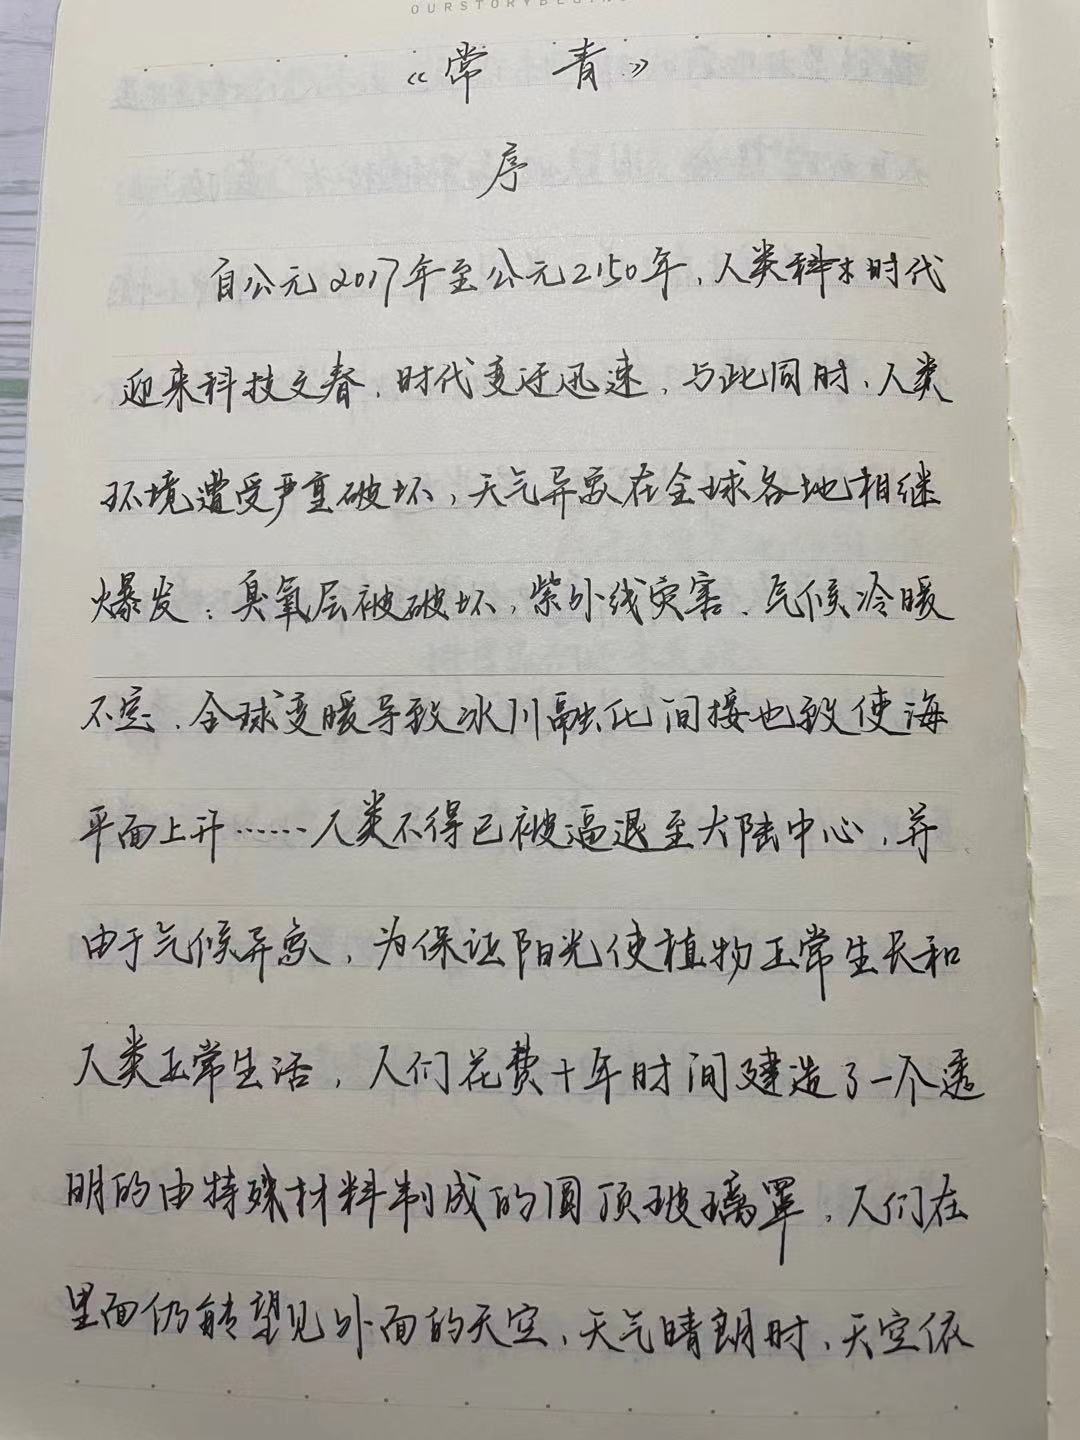 OURSTORYBEGINS
《常 青》
序
自公元2017年至公元2150年，人类科术时代
迎来科技文春，时代变迁迅速，与此同时，人类
环境遭受严重破坏，天气异象在全球各地相继
爆发：臭氧层被破坏，紫外线灾害、气候冷暖
不定、全球变暖导致冰川融化间接也致使海
平面上升……人类不得已被逼退至大陆中心，并
由于气候异象，为保证阳光使植物正常生长和
人类正常生活，人们花费十年时间建造了一个透
明的由特殊材料制成的圆顶玻璃罩，人们在
里面仍能望见外面的天空，天气晴朗时，天空依